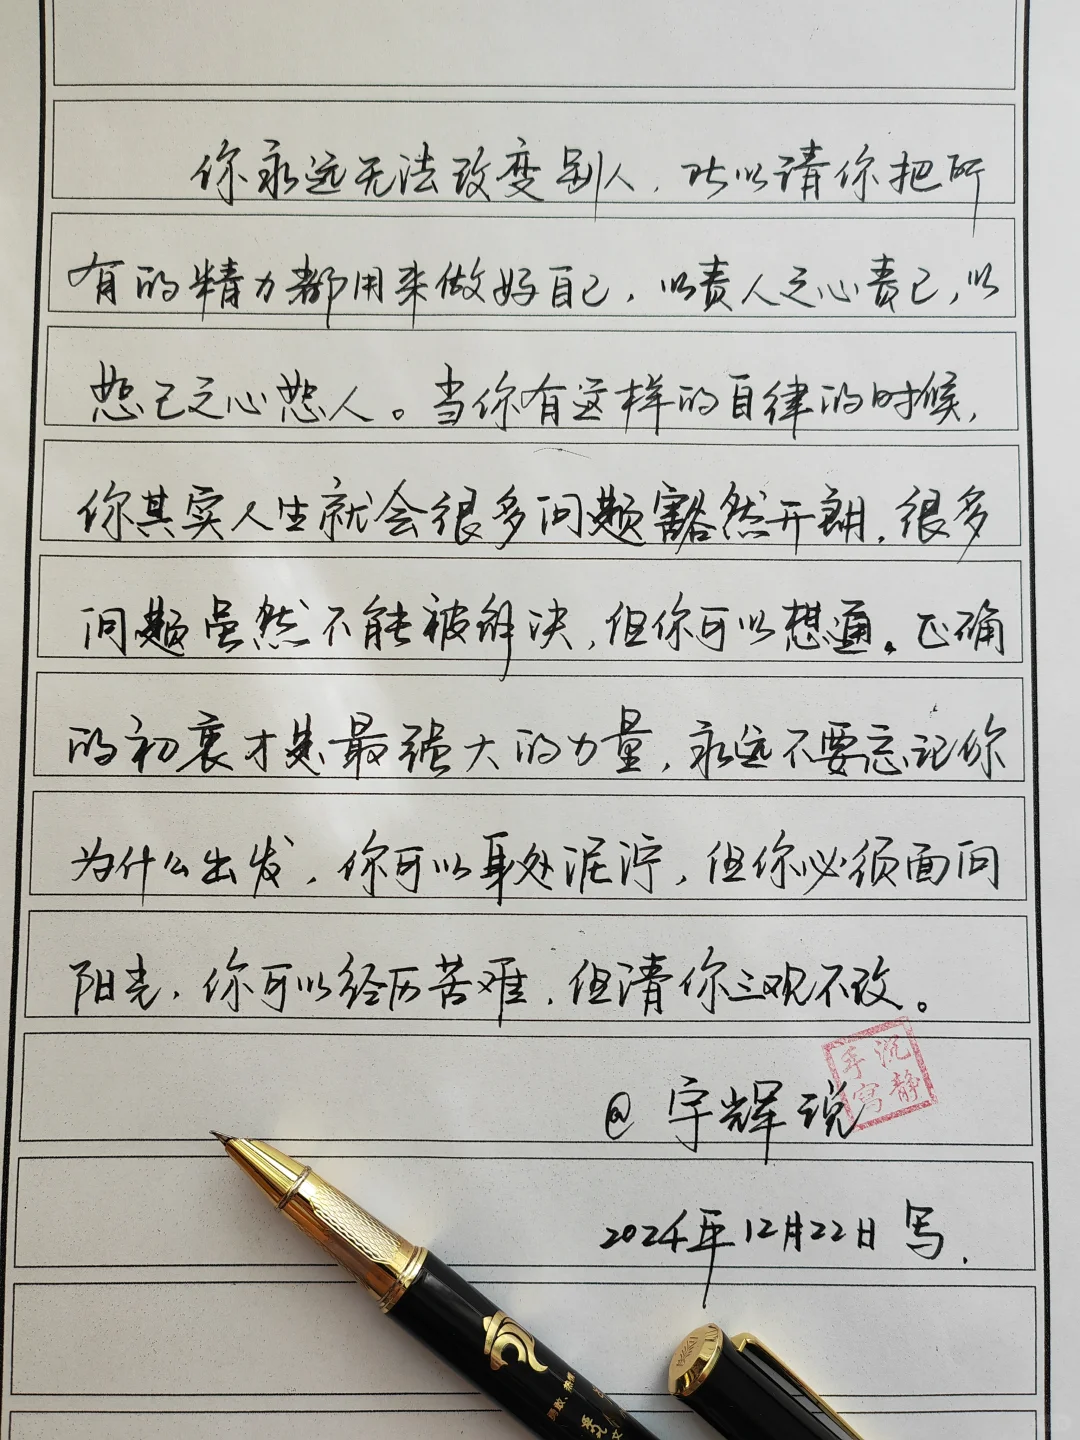 你永远无法改变别人，所以请你把所
有的精力都用来做好自己，以责人之心责己，以
恕己之心恕人。当你有这样的自律的时候，
你其实人生就会很多问题豁然开朗，很多
问题虽然不能被解决，但你可以想通。正确
的初衷才是最强大的力量，永远不要忘记你
为什么出发，你可以身处泥泞，但你必须面向
阳光，你可以经历苦难，但请你三观不改。
@宇辉说
沉静手写
2024年12月22日写.